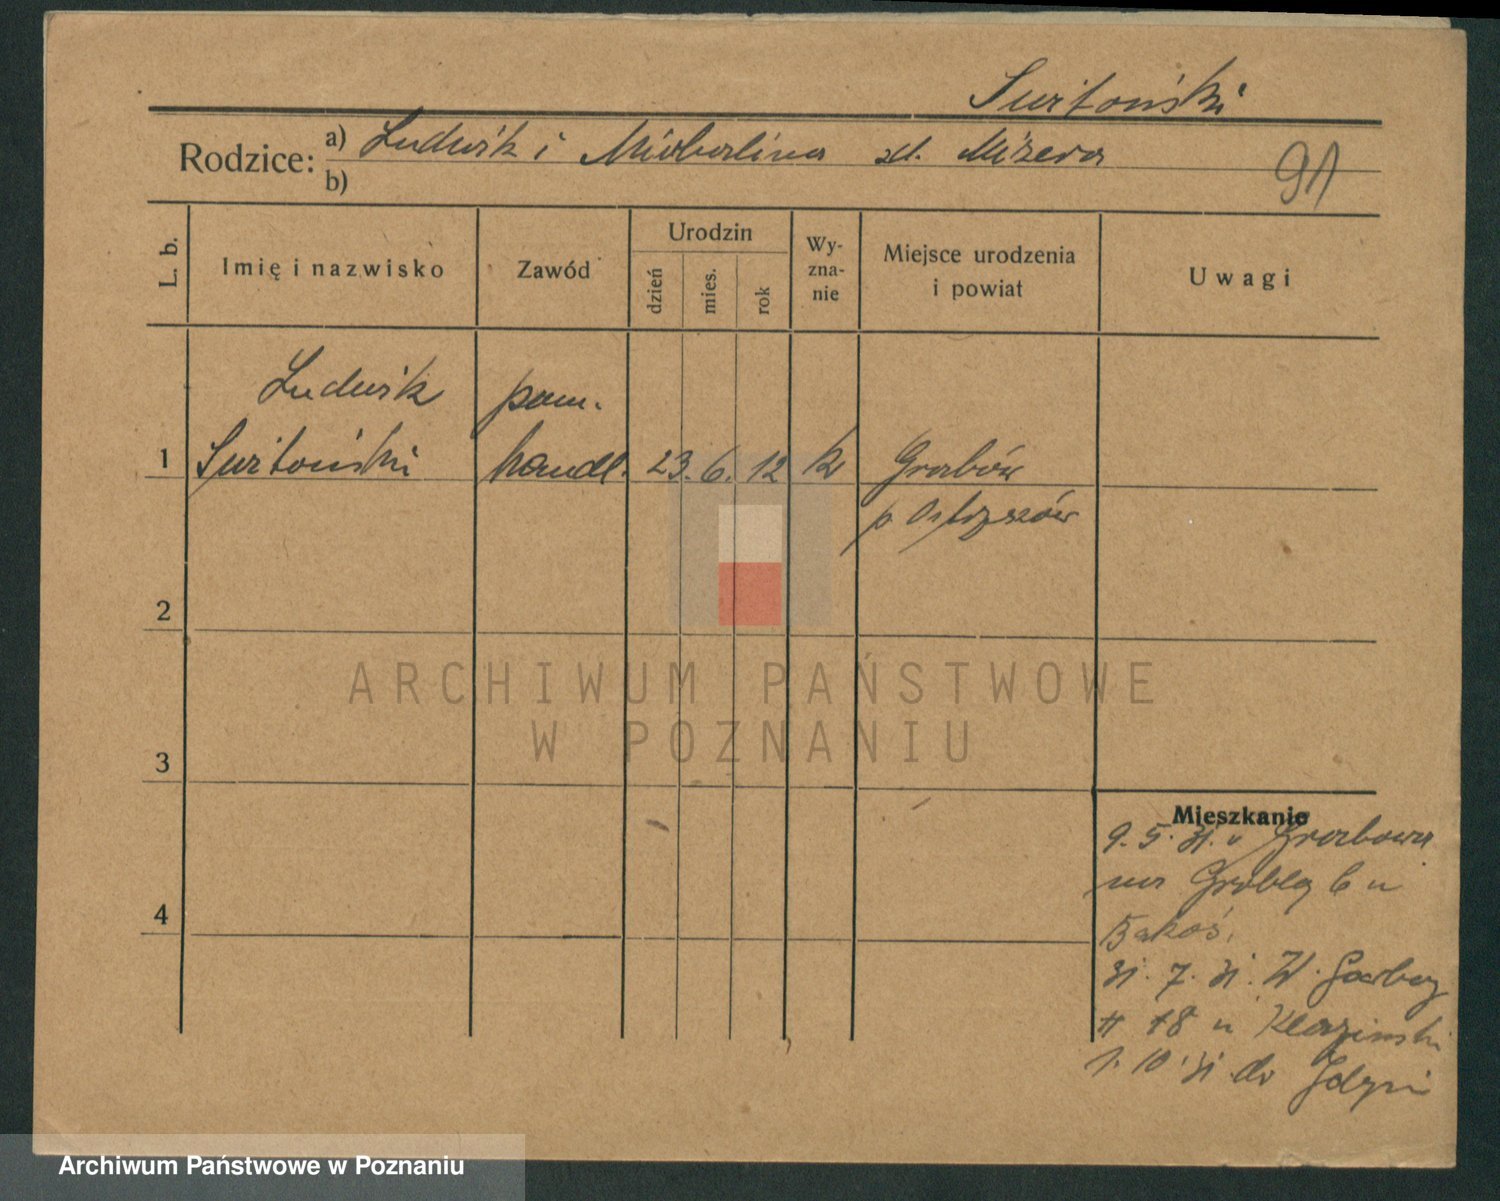 Świtoński
Rodzice: a) Ludwik i Michalina zd. Mizera
b)
91
L. b.
Imię i nazwisko
Zawód
Urodzin
dzień
mies.
rok
Wy-
zna-
nie
Miejsce urodzenia
i powiat
Uwagi
Ludwik pom.
1 Świtoński handl. 23. 6. 12 k Grabów
p. Ostrzeszów
2
ARCHIWUM PAŃSTWOWE
W POZNANIU
3
Mieszkanie
9. 5. 31. z Grabowa
na Grobla 6 u
Bąkoś.
31. 7. 31. W. Garbary
48 u
1. 10. 31 do Gdyni
4
Archiwum Państwowe w Poznaniu